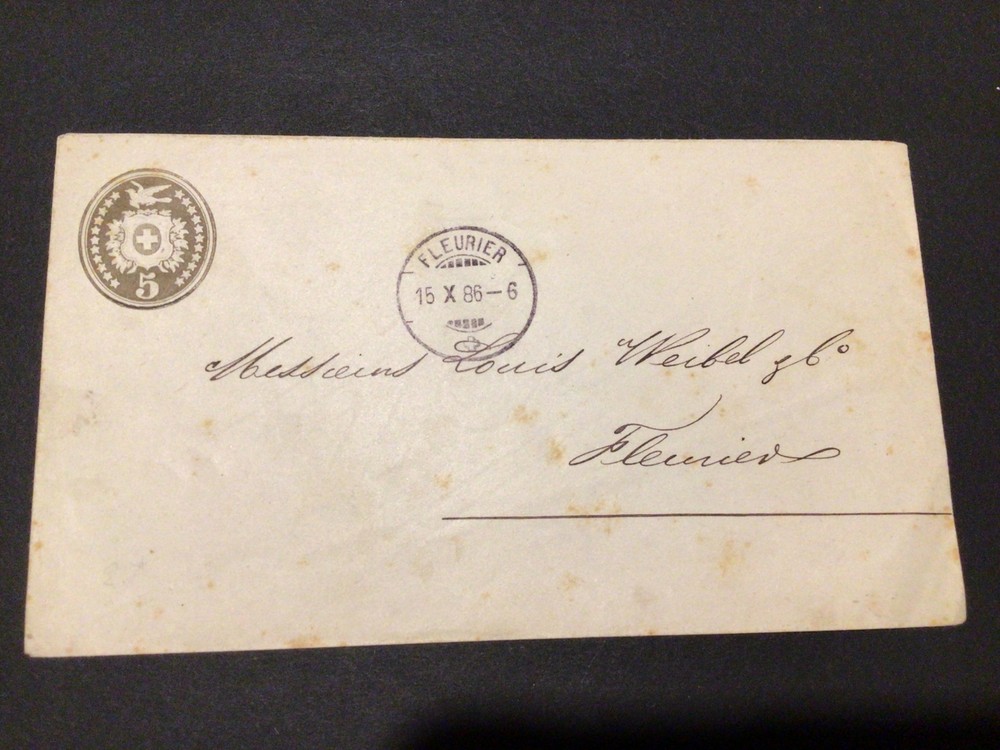 5
FLEURIER
15 X 86-6
Messieurs Louis Weibel & Cº
Fleurier